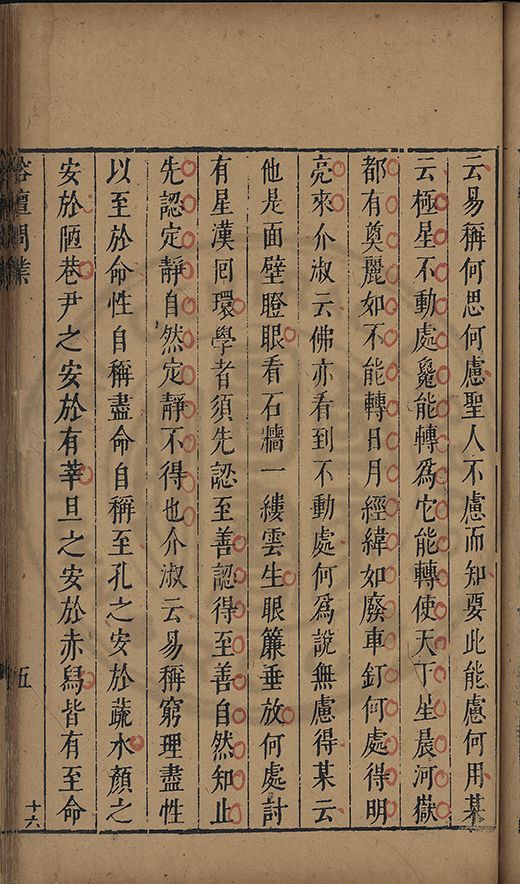 云易稱何思何慮聖人不慮而知要此能慮何用某
云極星不動處纔能轉為它能轉使天下星晨河嶽
都有奠麗如不能轉日月經緯如廢車釘何處得明
亮來介淑云佛亦看到不動處何為說無慮得某云
他是面壁瞪眼看石牆一縷雲生眼簾垂放何處討
有星漢囘環學者須先認至善認得至善自然知止
先認定靜自然定靜不得也介淑云易稱窮理盡性
以至於命性自稱盡命自稱至孔之安於蔬水顏之
安於陋巷尹之安於有莘旦之安於赤舄皆有至命
榕壇問業
五
十六